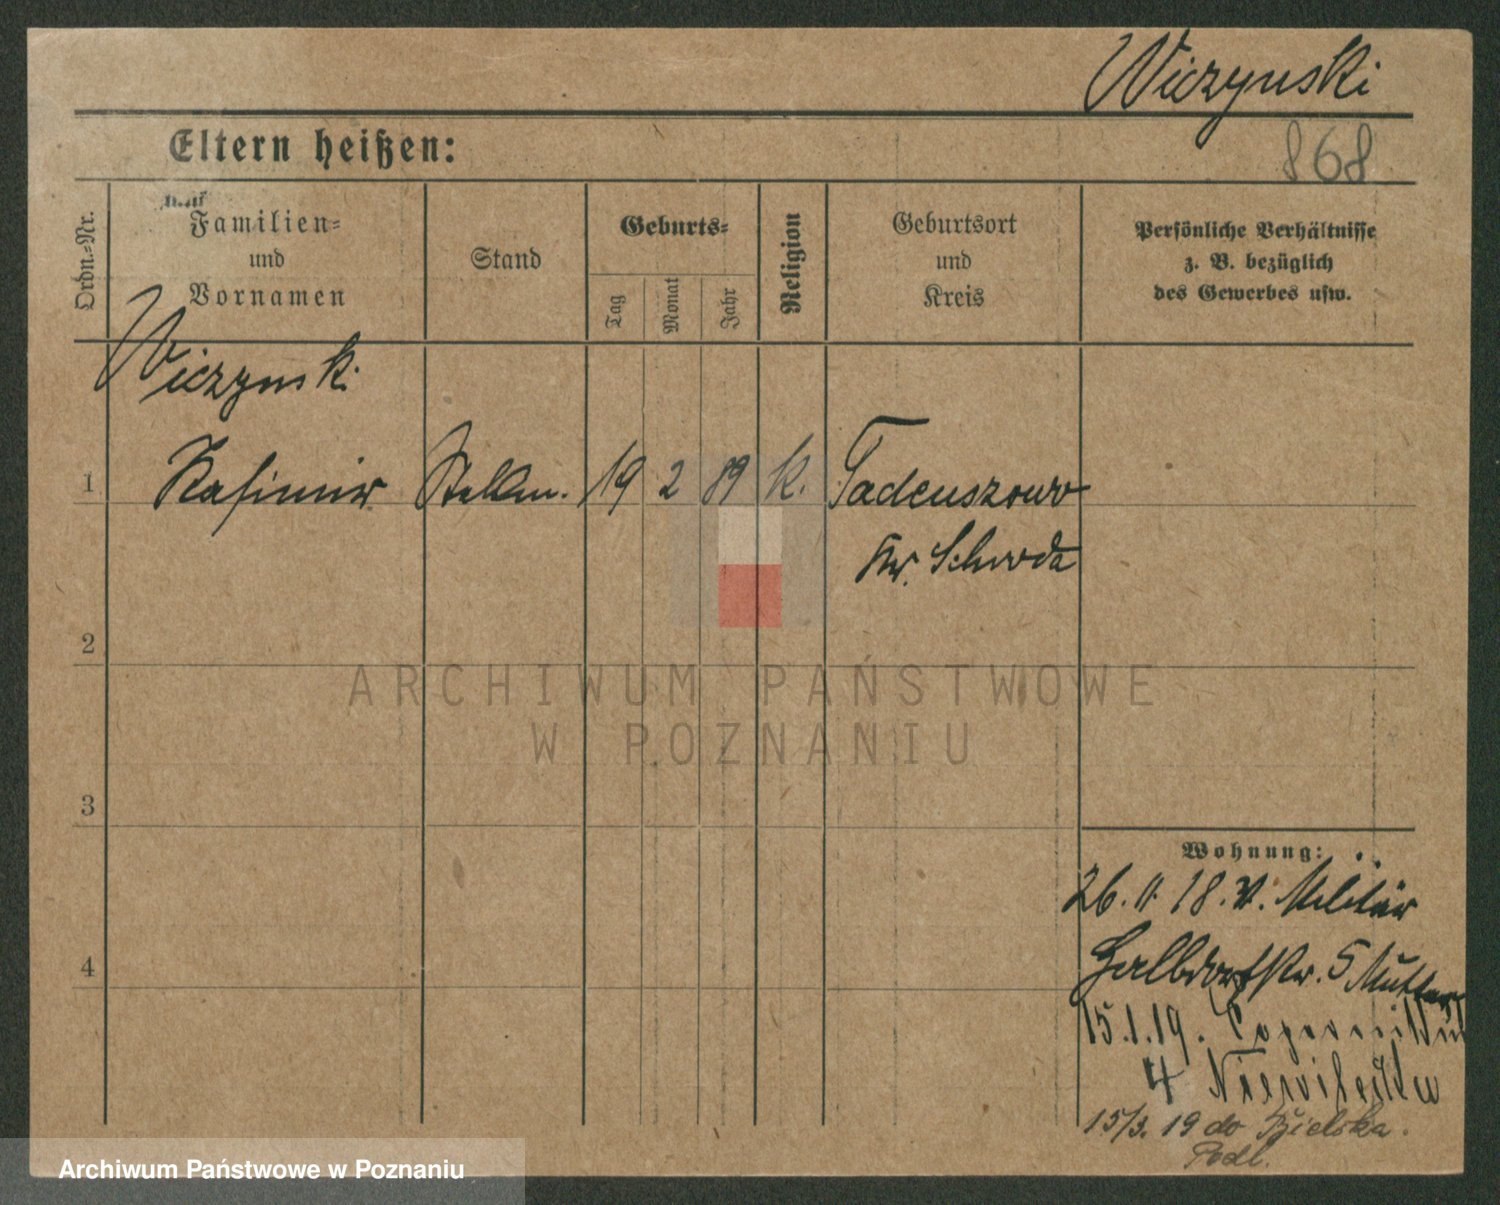 Wiczynski
868
Eltern heißen:
Ordn.-Nr.
Familien-
und
Vornamen
Stand
Geburts-
Tag
Monat
Jahr
Religion
Geburtsort
und
Kreis
Persönliche Verhältnisse
z. B. bezüglich
des Gewerbes usw.
Wiczynski
1 Kasimir Stellm. 19 2 89 K. Tadeuszowo
Kr. Schroda
2
3
4
Wohnung:
26. 11. 18. v. Militär
Halbdorfstr. 5 Mutter
15.1.19.
4
15/3. 19 do Bielska
Podl.
ARCHIWUM PAŃSTWOWE
W POZNANIU
Archiwum Państwowe w Poznaniu